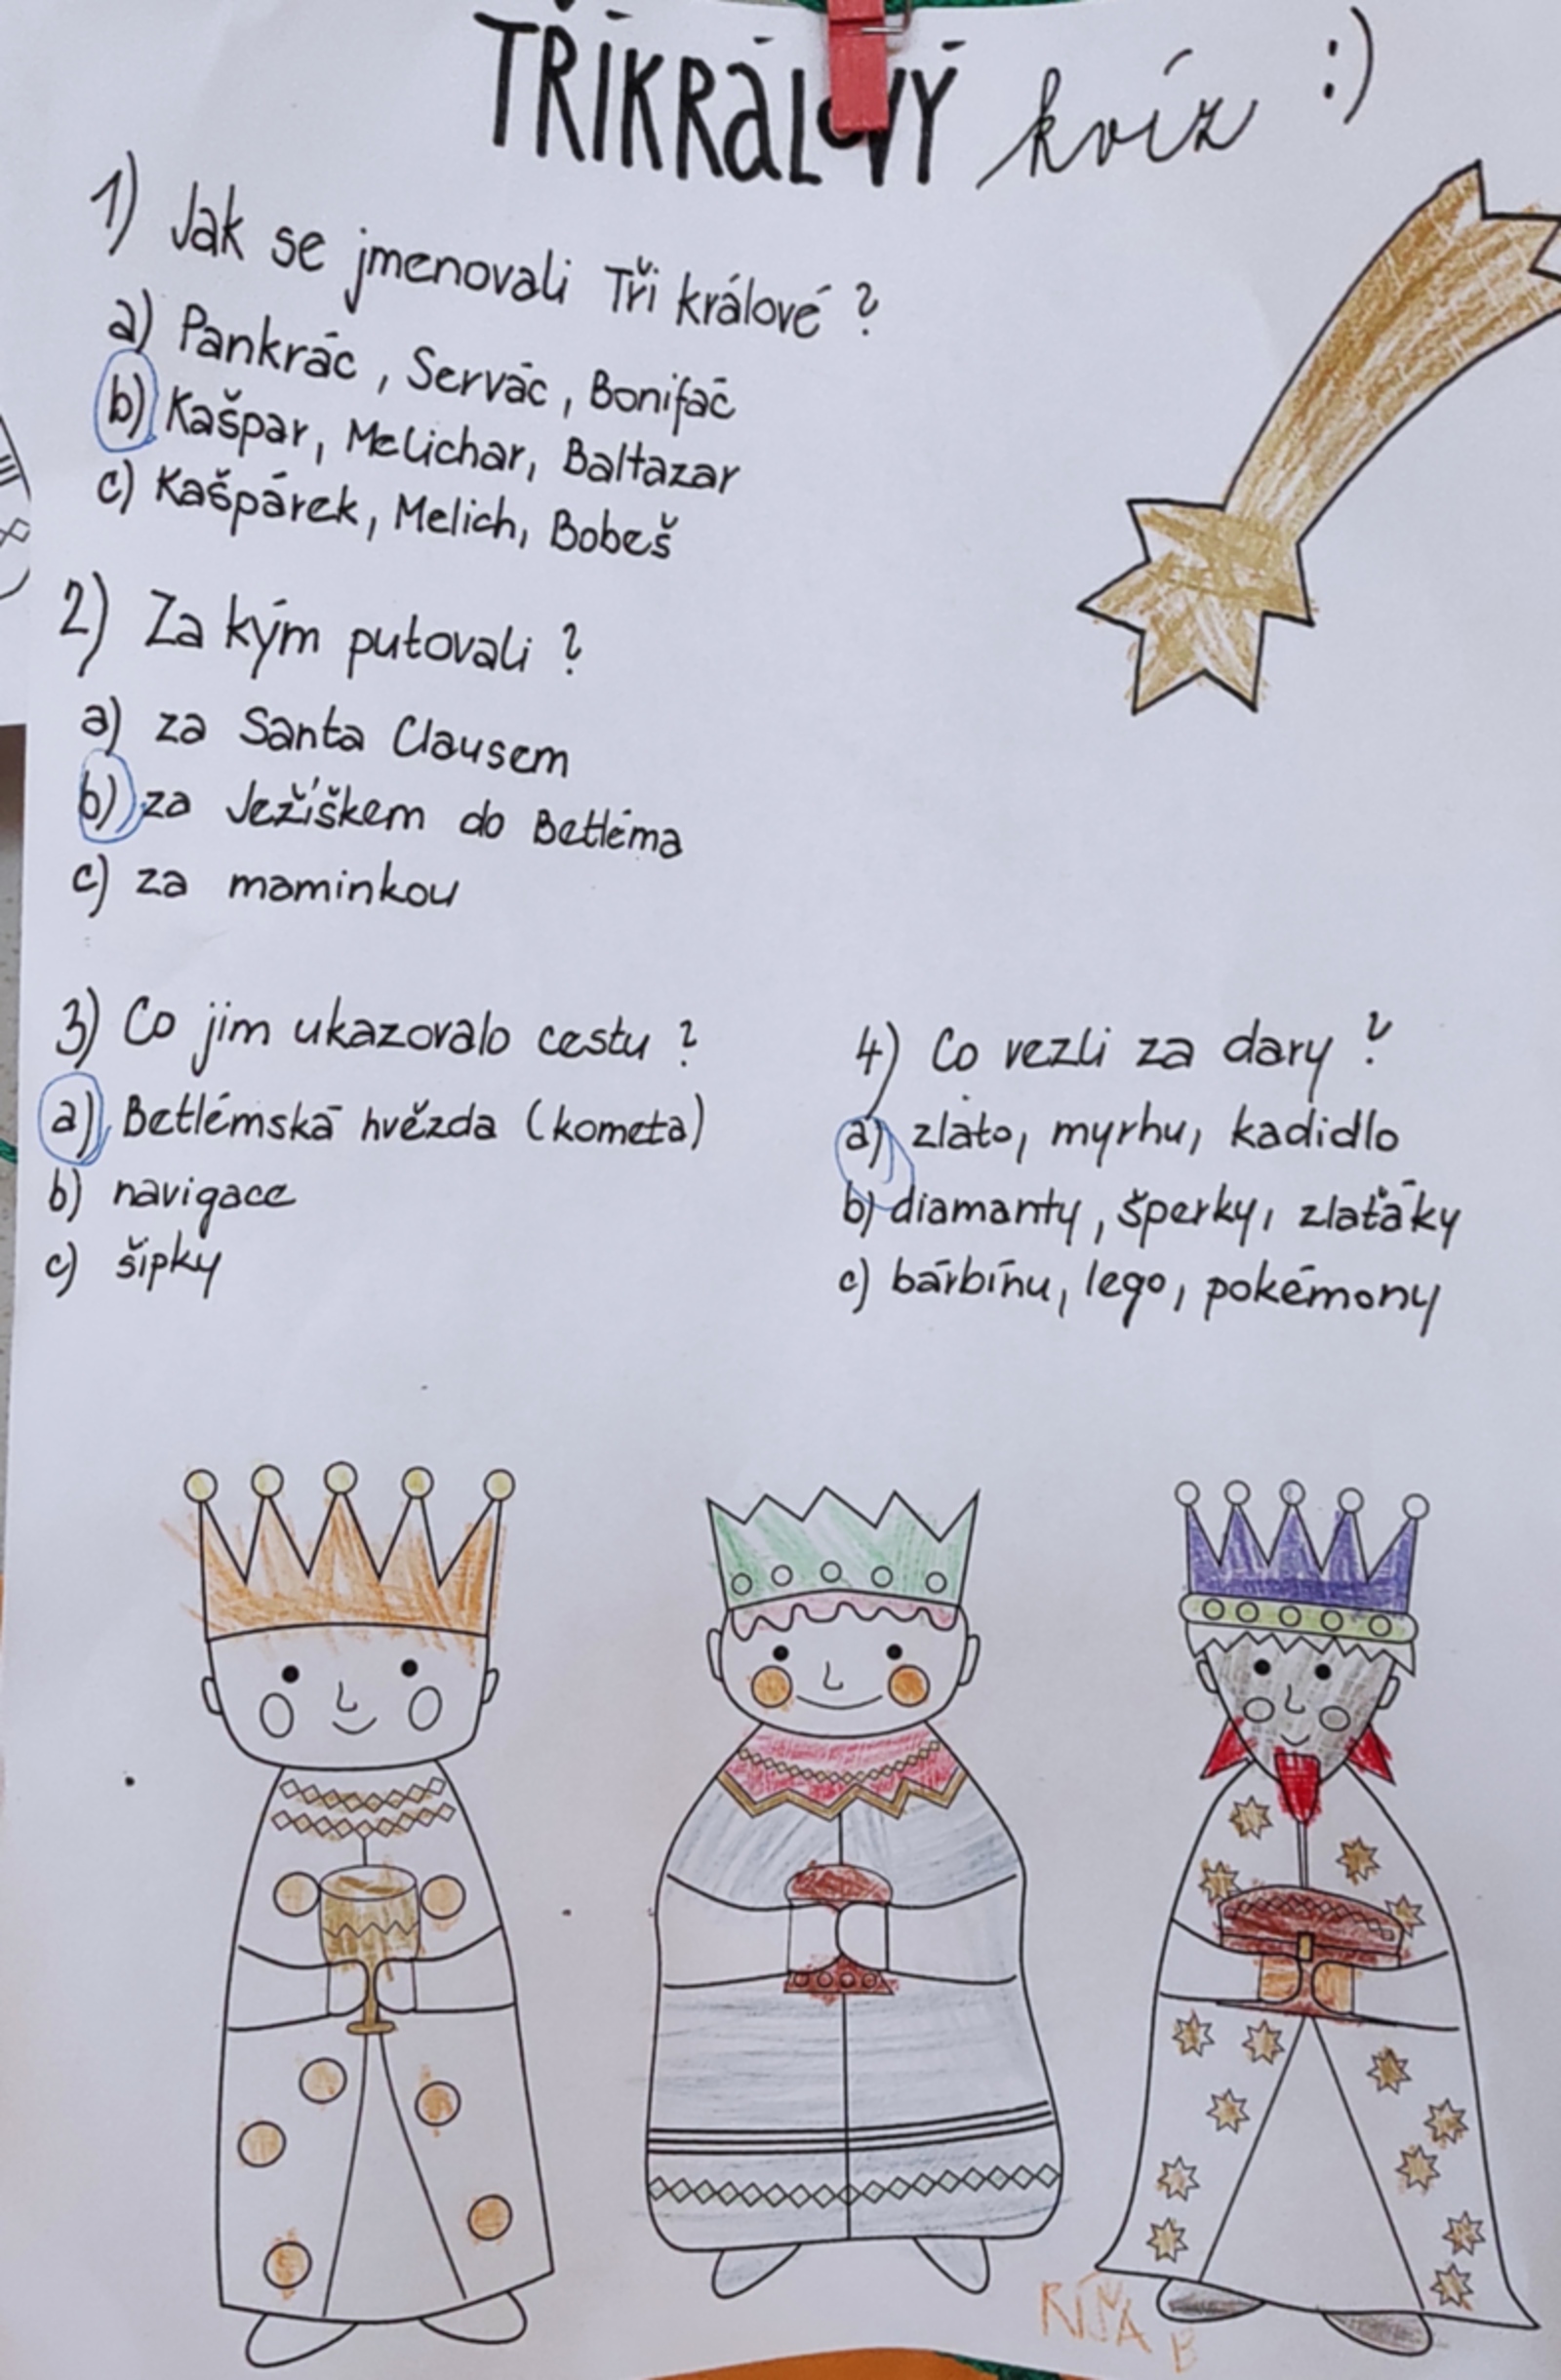 TŘÍKRÁLOVÝ kvíz :)
1) Jak se jmenovali Tři králové?
a) Pankrác, Servác, Bonifác
b) Kašpar, Melichar, Baltazar
c) Kašpárek, Melich, Bobeš
2) Za kým putovali?
a) za Santa Clausem
b) za Ježíškem do Betléma
c) za maminkou
3) Co jim ukazovalo cestu?
a) Betlémská hvězda (kometa)
b) navigace
c) šipky
4) Co vezli za dary?
a) zlato, myrhu, kadidlo
b) diamanty, šperky, zlaťáky
c) bárbínu, lego, pokémony
RÍŠA
B